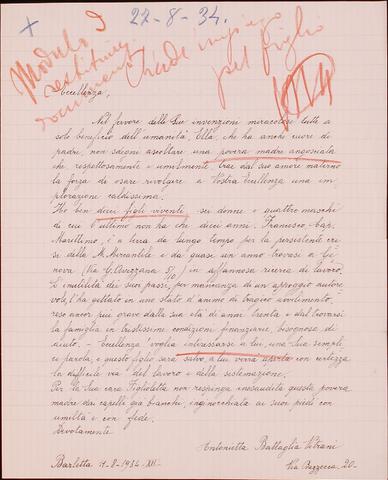 22-8-34.
Modulo I
restituire
documenti
Chiede impiego
pel figlio
Eccellenza,
Nel fervore delle Sue invenzioni miracolose tutte a
solo beneficio dell'umanità Ella, che ha anche cuore di
padre, non sdegni ascoltare una povera madre angosciata
che rispettosamente e umilmente trae dal suo amore materno
la forza di osare rivolgere a Vostra Eccellenza una im-
plorazione caldissima.
Ho ben dieci figli viventi: sei donne e quattro maschi
di cui l'ultimo non ha che dieci anni. Francesco, Cap.
Marittimo, è a terra da lungo tempo per la persistente cri-
si della M. Mercantile e da quasi un anno trovasi a Ge-
nova (Via G. Avezzana 5) in affannosa ricerca di lavoro.
L'inutilità dei suoi passi, per mancanza di un appoggio autore-
vole, l'ha gettato in uno stato d'animo di tragico avvilimento,
reso ancor più grave dalla sua età di anni trenta e dal trovarsi
la famiglia in tristissime condizioni finanziarie, bisognosa di
aiuto. - Eccellenza, voglia interessarsi a lui, una Sua sempli-
ce parola, e questo figlio sarà salvo, a lui verrà aperta con certezza
la difficile via del lavoro e della sistemazione.
Per la Sua cara Figlioletta non respinga inesaudita questa povera
madre dai capelli già bianchi, inginocchiata ai Suoi piedi con
umiltà e con fede.
Devotamente
Antonietta Battaglia Vitrani
Barletta 11-8-1934-XII-
Via Bezzecca 20-